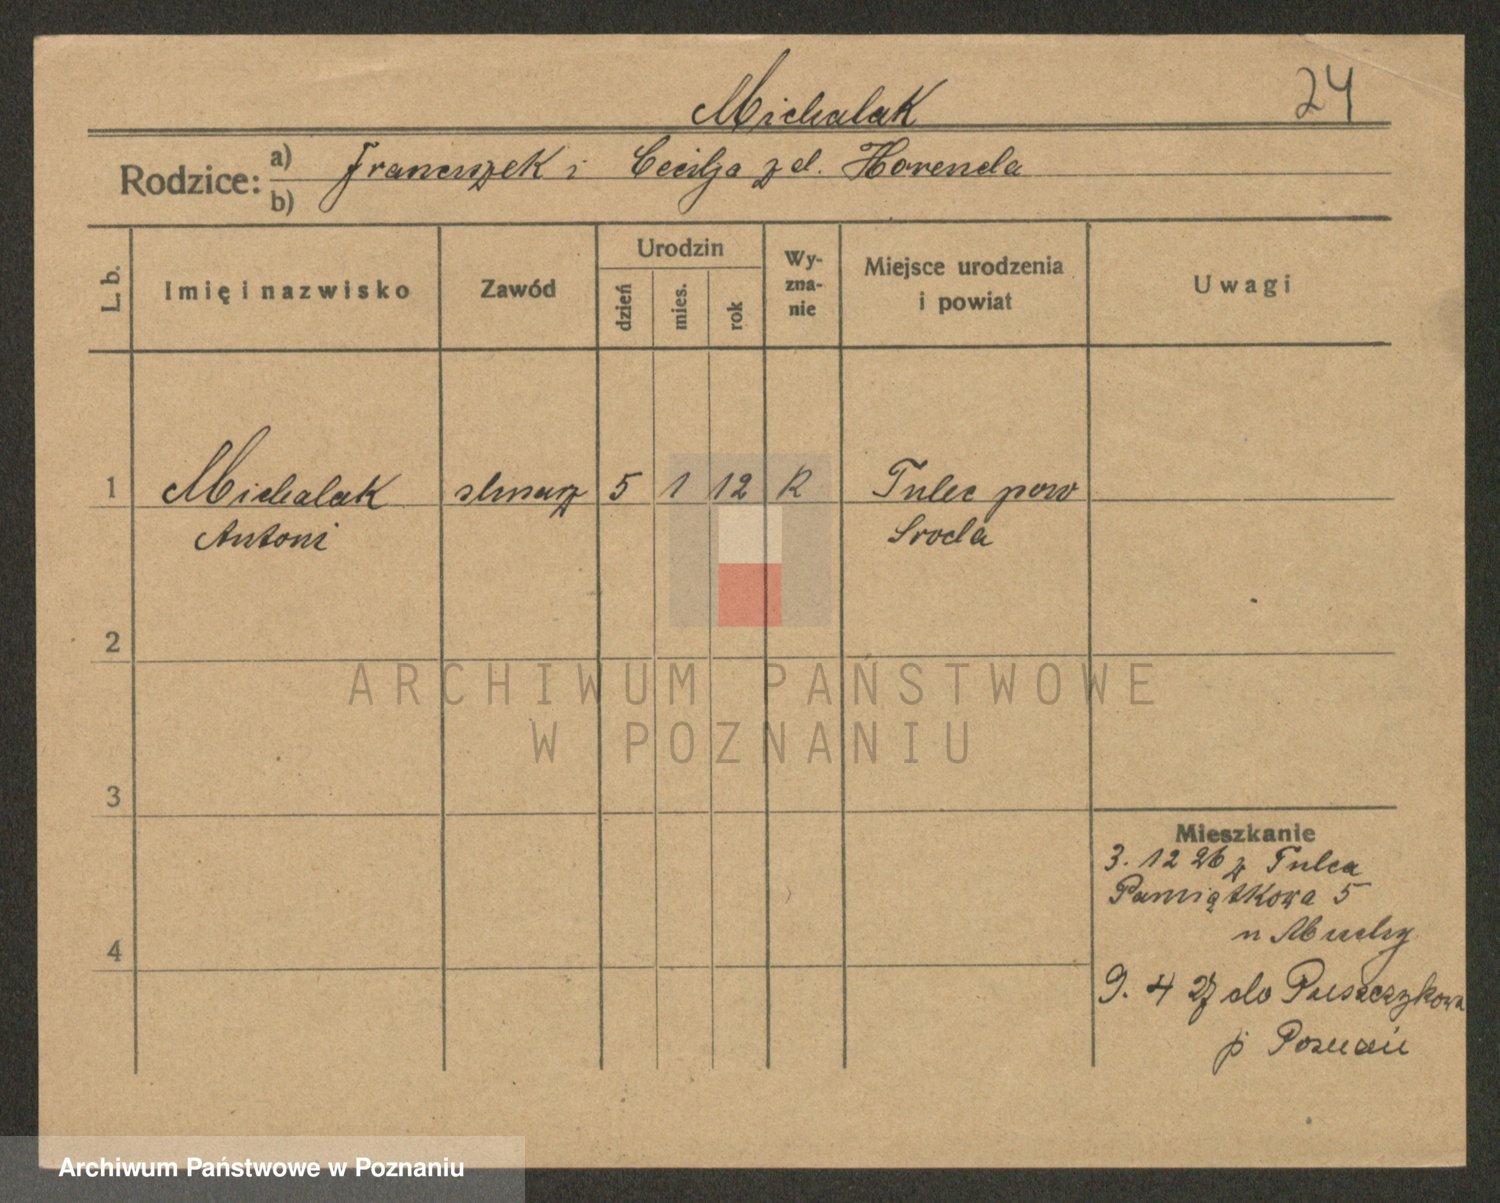 24
Michalak
Rodzice: a) Franciszek i Cecilja z d. Horenda
b)
L. b.
Imię i nazwisko
Zawód
Urodzin
dzień
mies.
rok
Wy-
zna-
nie
Miejsce urodzenia
i powiat
Uwagi
1 Michalak 5 1 12 R Tulec pow
Antoni Sroda
2
3
4
Mieszkanie
3. 12 26 z Tulca
Pamiątkowa 5
9. 4 27 do Puszczykowa
p Poznań
ARCHIWUM PAŃSTWOWE
W POZNANIU
Archiwum Państwowe w Poznaniu